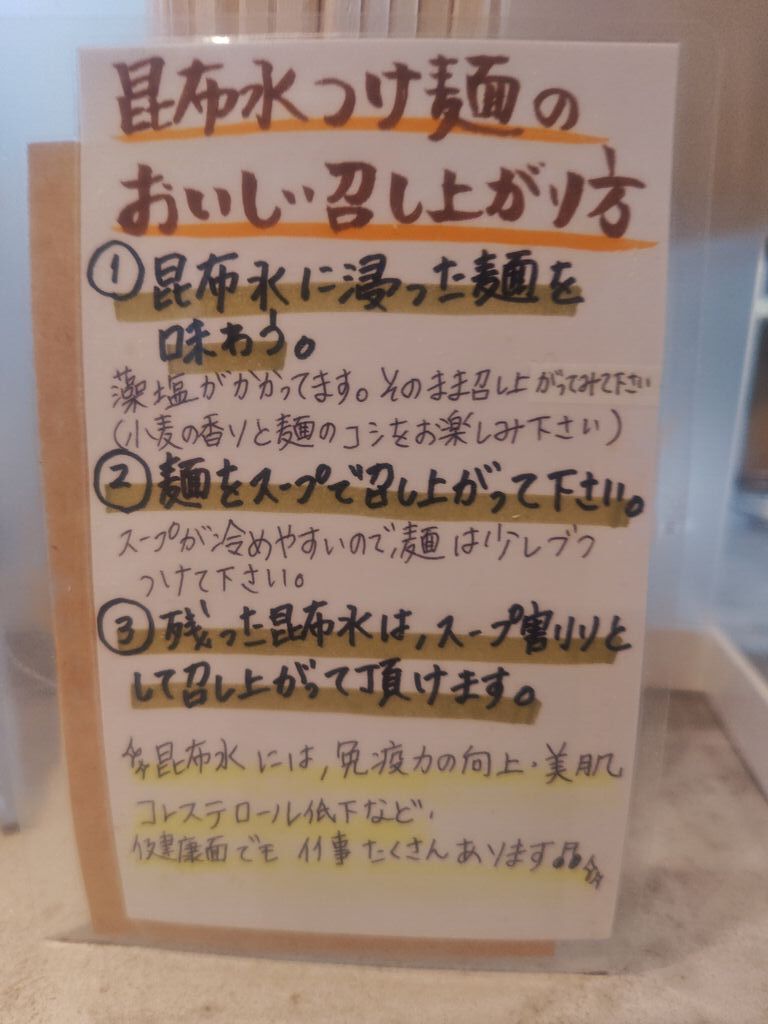 昆布水つけ麺の
おいしい召し上がり方
① 昆布水に浸った麺を
味わう。
藻塩がかかってます。そのまま召し上がってみて下さい
(小麦の香りと麺のコシをお楽しみ下さい)
② 麺をスープで召し上がって下さい。
スープが冷めやすいので、麺は少しづつ
つけて下さい。
③ 残った昆布水は、スープ割りと
して召し上がって頂けます。
☆昆布水には、免疫力の向上・美肌
コレステロール低下など、
健康面でも 事たくさんあります♫☆